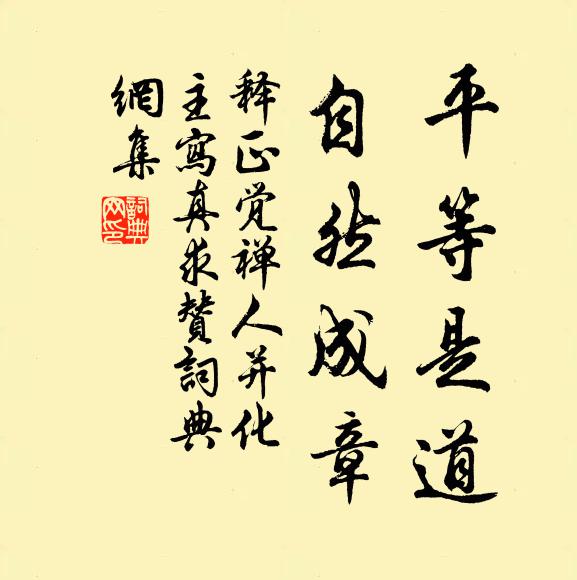 平等是道
自然成章
释正觉禅人并化
主寫真求贊詞典
網集
詞典
网印